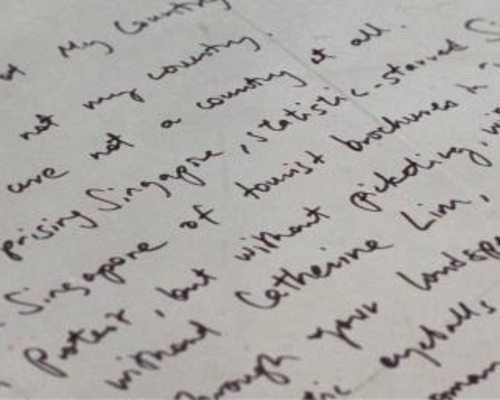 My Country
not my country.
are not a country at all.
prising Singapore, statistic-starred
Singapore of tourist brochures in
Protest, but without picketing, wi
without Catherine Lim,
hrough your landsp
ic eyeballs